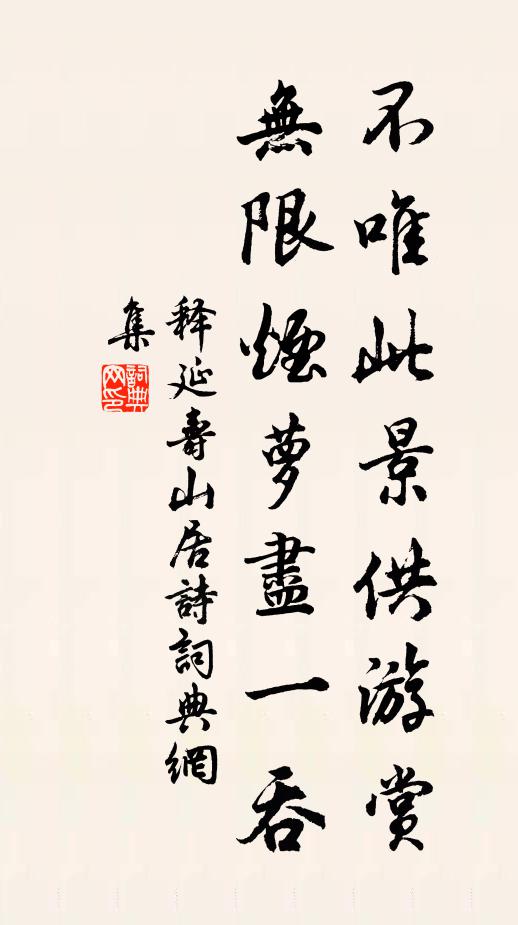 不唯此景供游賞
無限煙萝盡一吞
释延壽山居詩詞典網
集
詞典
网印